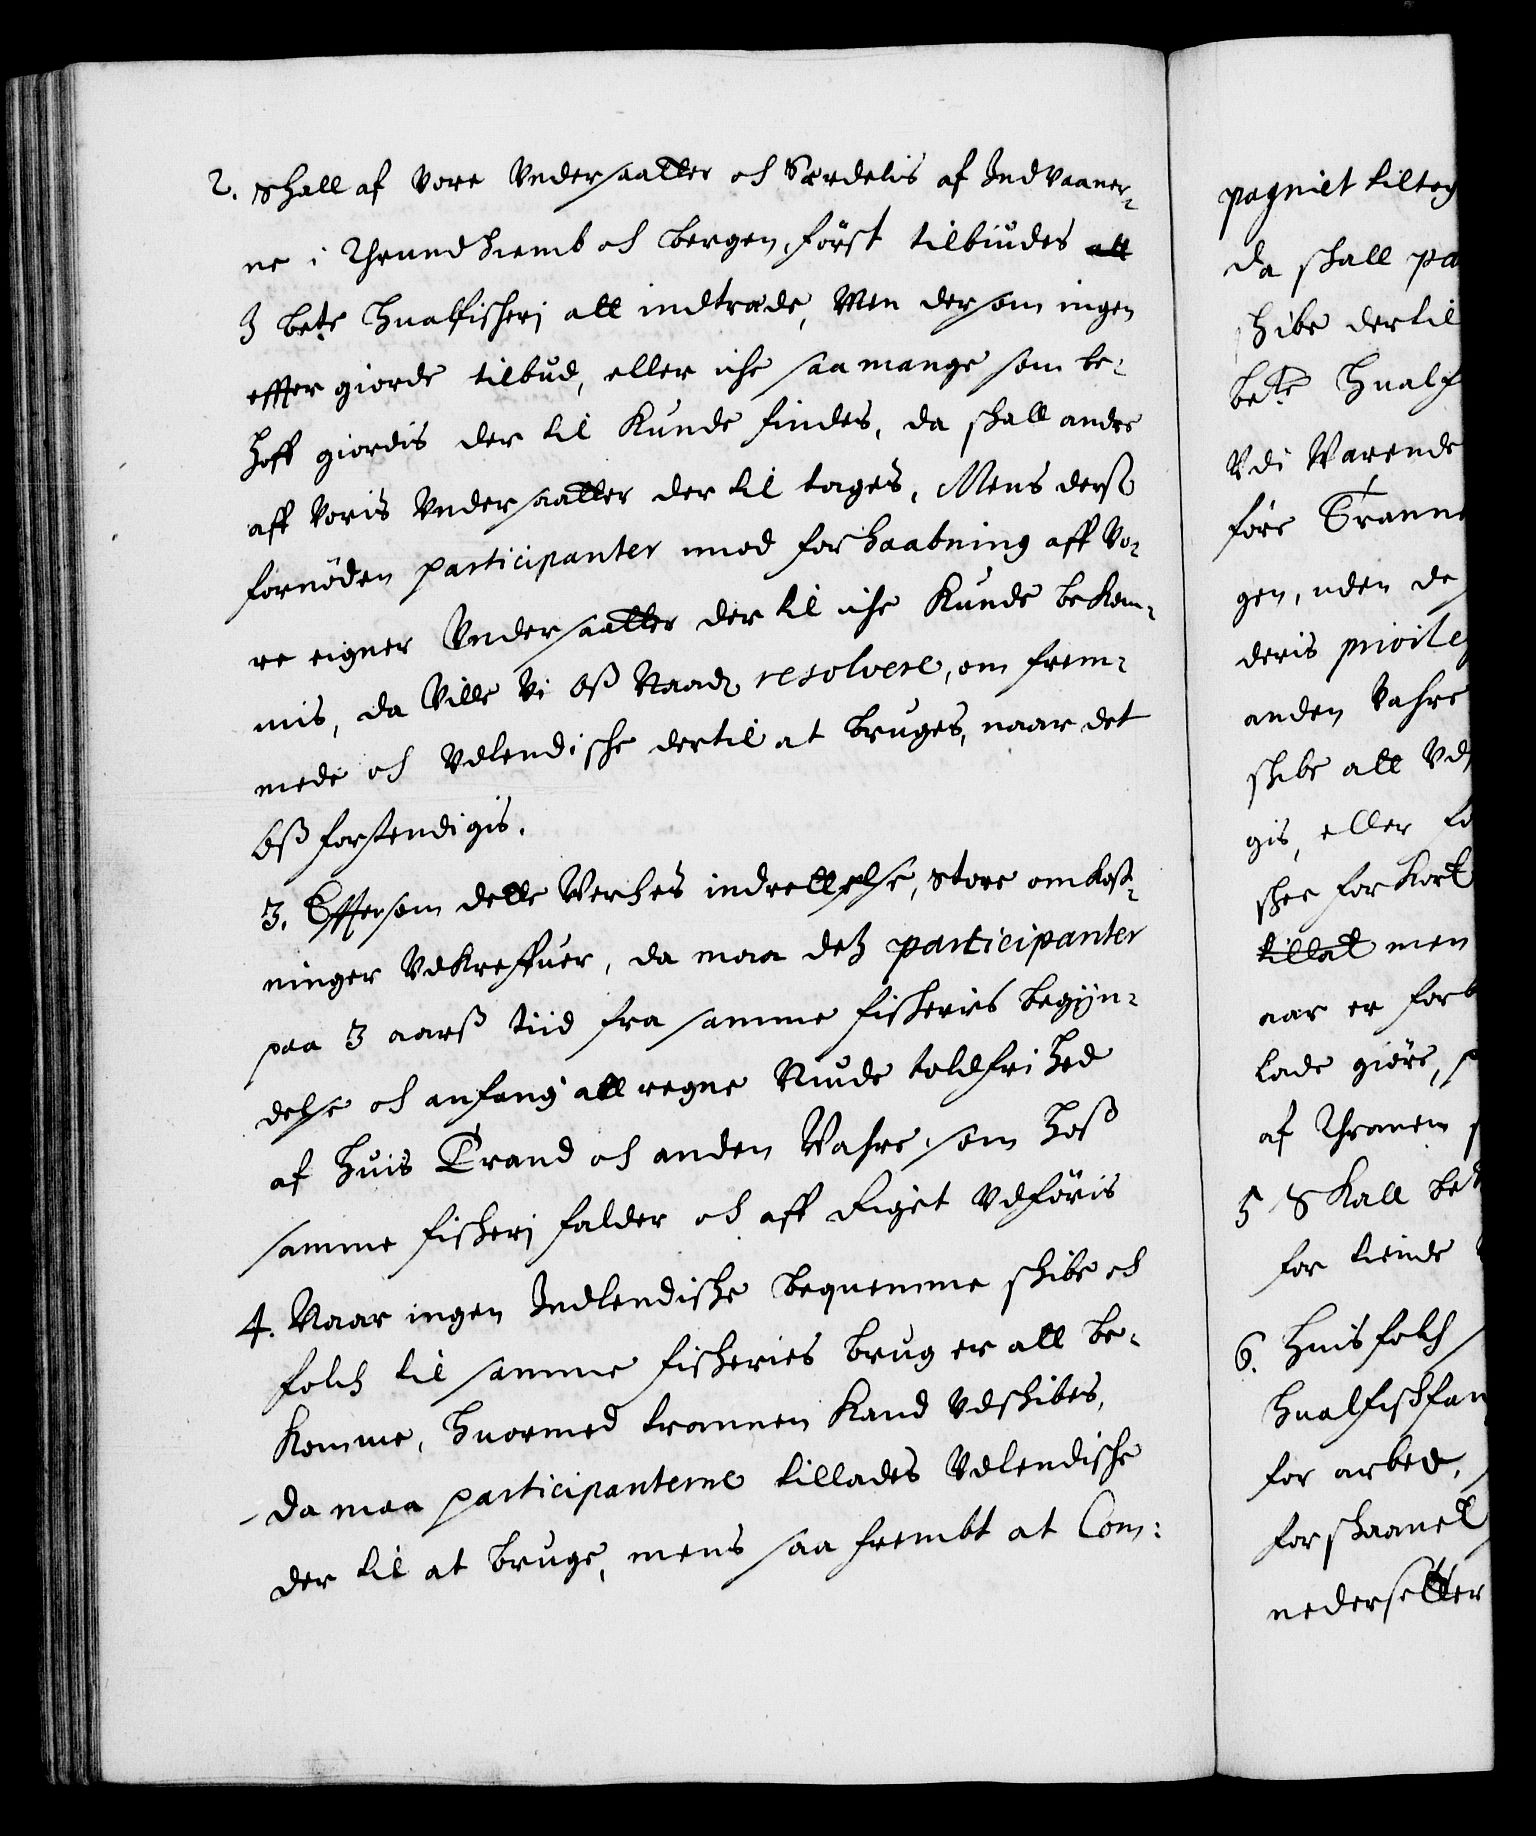 2. Skall af Vore Vndersaatter och Særdelis af Indvaaner-
ne i Thrundhiemb och Bergen, först tilbiudes att
I bete Hualfischerj att indtræde, Men dersom ingen
effter giorde tilbud, eller iche saa mange som be-
hoff giordis der til Kunde findes, da skall andre
aff Voris Vndersaatter der til tages, Mens derß
fornöden participanter imod forhaabning aff Vo-
re eigner Vndersaatter der til iche Kunde bekom-
mis, da Ville Vi oß Naad: resolvere, om frem-
mede och Vdlendische dertil at bruges, naar det
oß forstendigis.
3. Effersom dette Werches indrettelse, store omkost-
ninger Vdkreffuer, da maa deß participanter
paa 3 aarß tiid fra samme fischeries begÿn-
delse och anfang att regne Niude toldfrihed
af huis Trand och anden Wahre, som hoß
samme fischerj falder och aff Riget Vdföris
4. Naar ingen Indlendische bequemme schibe och
folch til samme fischeries brug er att be-
komme, huormed trannen Kand Vdschibes,
da maa participanterne tillades Vdlendische
der til at bruge, mens saa frembt at Com:
pagniet tiltog
da skall pa
schibe dertil
bete Hualf
Vdi Warende
före Trann
gen, uden de
deris privileg
anden Vahre
schibe att Vd
gis, eller
schee for Kort
tillat men
aar er forb
lade giöre,
af Thranen
5 Skall bet
for tiende
6. Huis folch
Hualfischfan
for arbed,
forskaanet
nedersetter